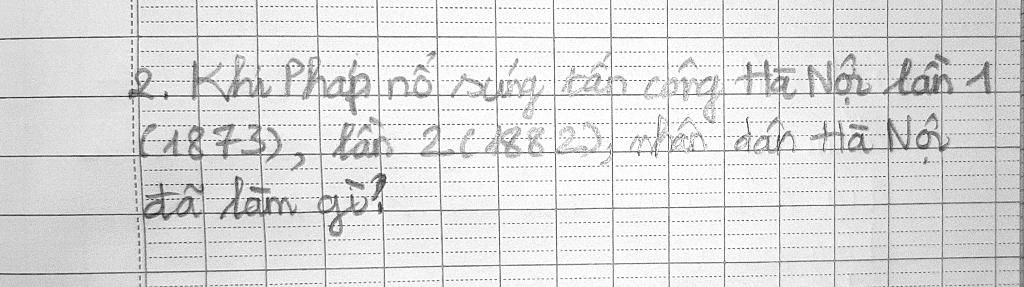 2. Khi Pháp nổ súng tấn công Hà Nội lần 1
(1873), lần 2 (1882), nhân dân Hà Nội
đã làm gì?